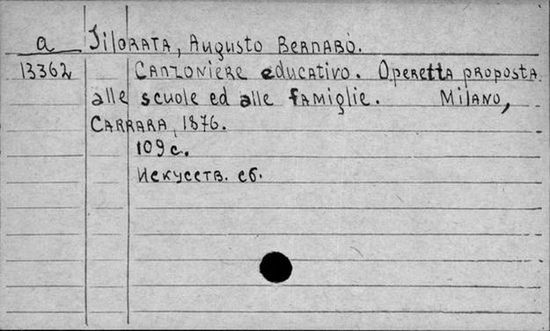 a Silorata, Augusto Bernabò.
13362 Canzoniere educativo. Operetta proposta
alle scuole ed alle famiglie. Milano,
Carrara, 1876.
109 с.
Искусств. сб.